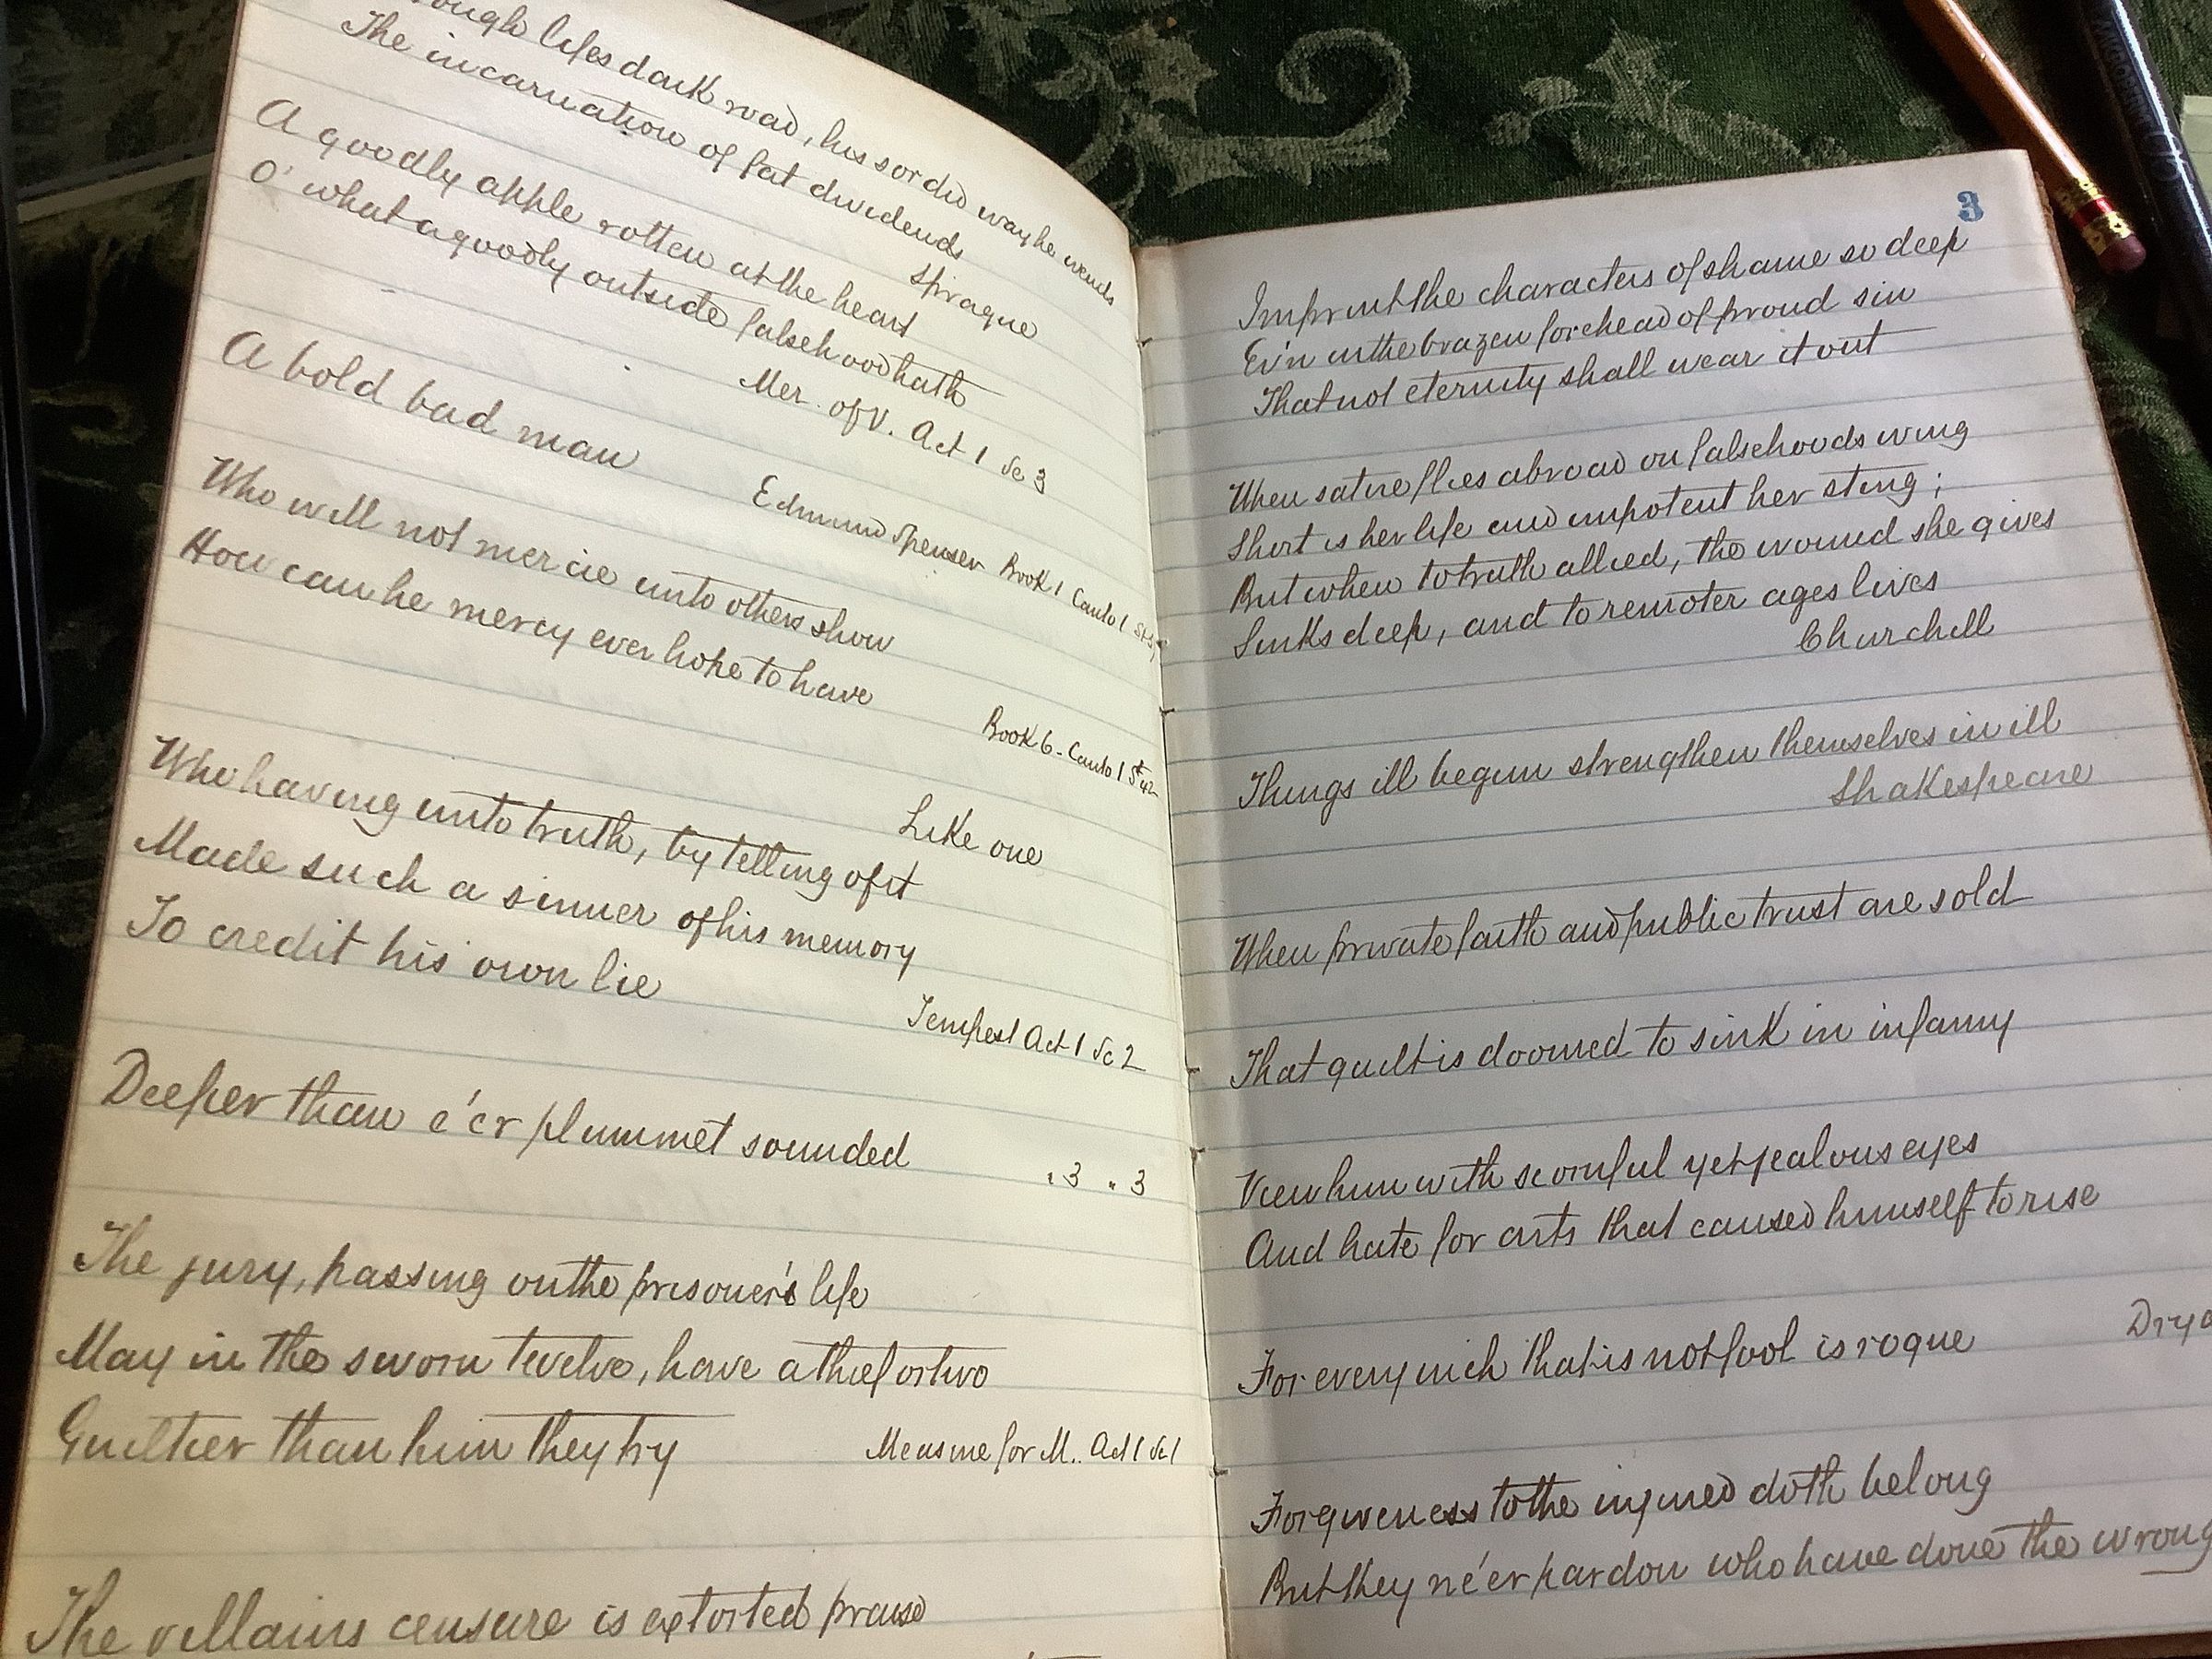 lifes dark road, his sordid way he wends
The incarnation of fat dividends
Sprague
A goodly apple rotten at the heart
O' what a goodly outside falsehood hath
Mer. of V. Act 1 Sc 3
A bold bad man
Edmund Spenser Book 1 Canto 1
Who will not mercie unto others show
How can he mercy ever hope to have
Book 6 - Canto 1 St 42
Like one
Who having unto truth, by telling of it
Made such a sinner of his memory
To credit his own lie
Tempest Act 1 Sc 2
Deeper than e'er plummet sounded
" 3 " 3
The jury, passing on the prisoner's life
May in the sworn twelve, have a thief or two
Guiltier than him they try
Measure for M.. Act 1 Sc 1
The villains censure is extorted praise
3
Imprint the characters of shame so deep
Ev'n in the brazen forehead of proud sin
That not eternity shall wear it out
When satire flies abroad on falsehoods wing
Short is her life and impotent her sting;
But when to truth allied, the wound she gives
Sinks deep, and to remoter ages lives
Churchill
Things ill begun strengthen themselves in ill
Shakespeare
When private faith and public trust are sold
That guilt is doomed to sink in infamy
View him with scornful yet jealous eyes
And hate for arts that caused himself to rise
For every inch that is not fool is rogue
Forgiveness to the injured doth belong
But they ne'er pardon who have done the wrong